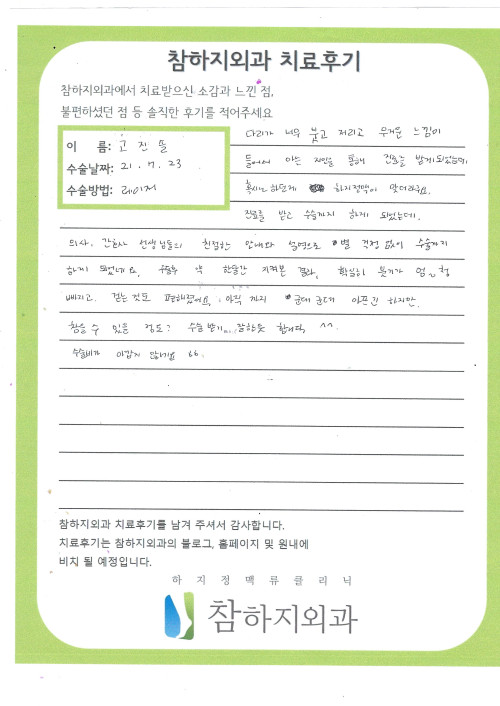 참하지외과 치료후기
참하지외과에서 치료받으신 소감과 느낀 점,
불편하셨던 점 등 솔직한 후기를 적어주세요
이 름: 고
수술날짜: 21. 7. 23
수술방법: 레이저
다리가 너무 붓고 저리고 무거운 느낌이
들어서 아는 지인을 통해 진료를 받게 되었는데,
혹시나 하던게 하지정맥이 맞더라구요.
진료를 받고 수술까지 하게 되었는데.
의사. 간호사 선생님들의 친절한 안내와 설명으로 별 걱정 없이 수술까지
하게 되었네요. 수술후 약 한달간 지켜본 결과, 확실히 붓기가 엄청
빠지고. 걷는 것도 편해졌어요, 아직 까지 군데 군데 아프긴 하지만.
참을 수 있을 정도? 수술 받기 잘한듯 합니다, ^^.
수술비가 아깝지 않아요
참하지외과 치료후기를 남겨 주셔서 감사합니다.
치료후기는 참하지외과의 블로그, 홈페이지 및 원내에
비치 될 예정입니다.
하지정맥류클리닉
참하지외과